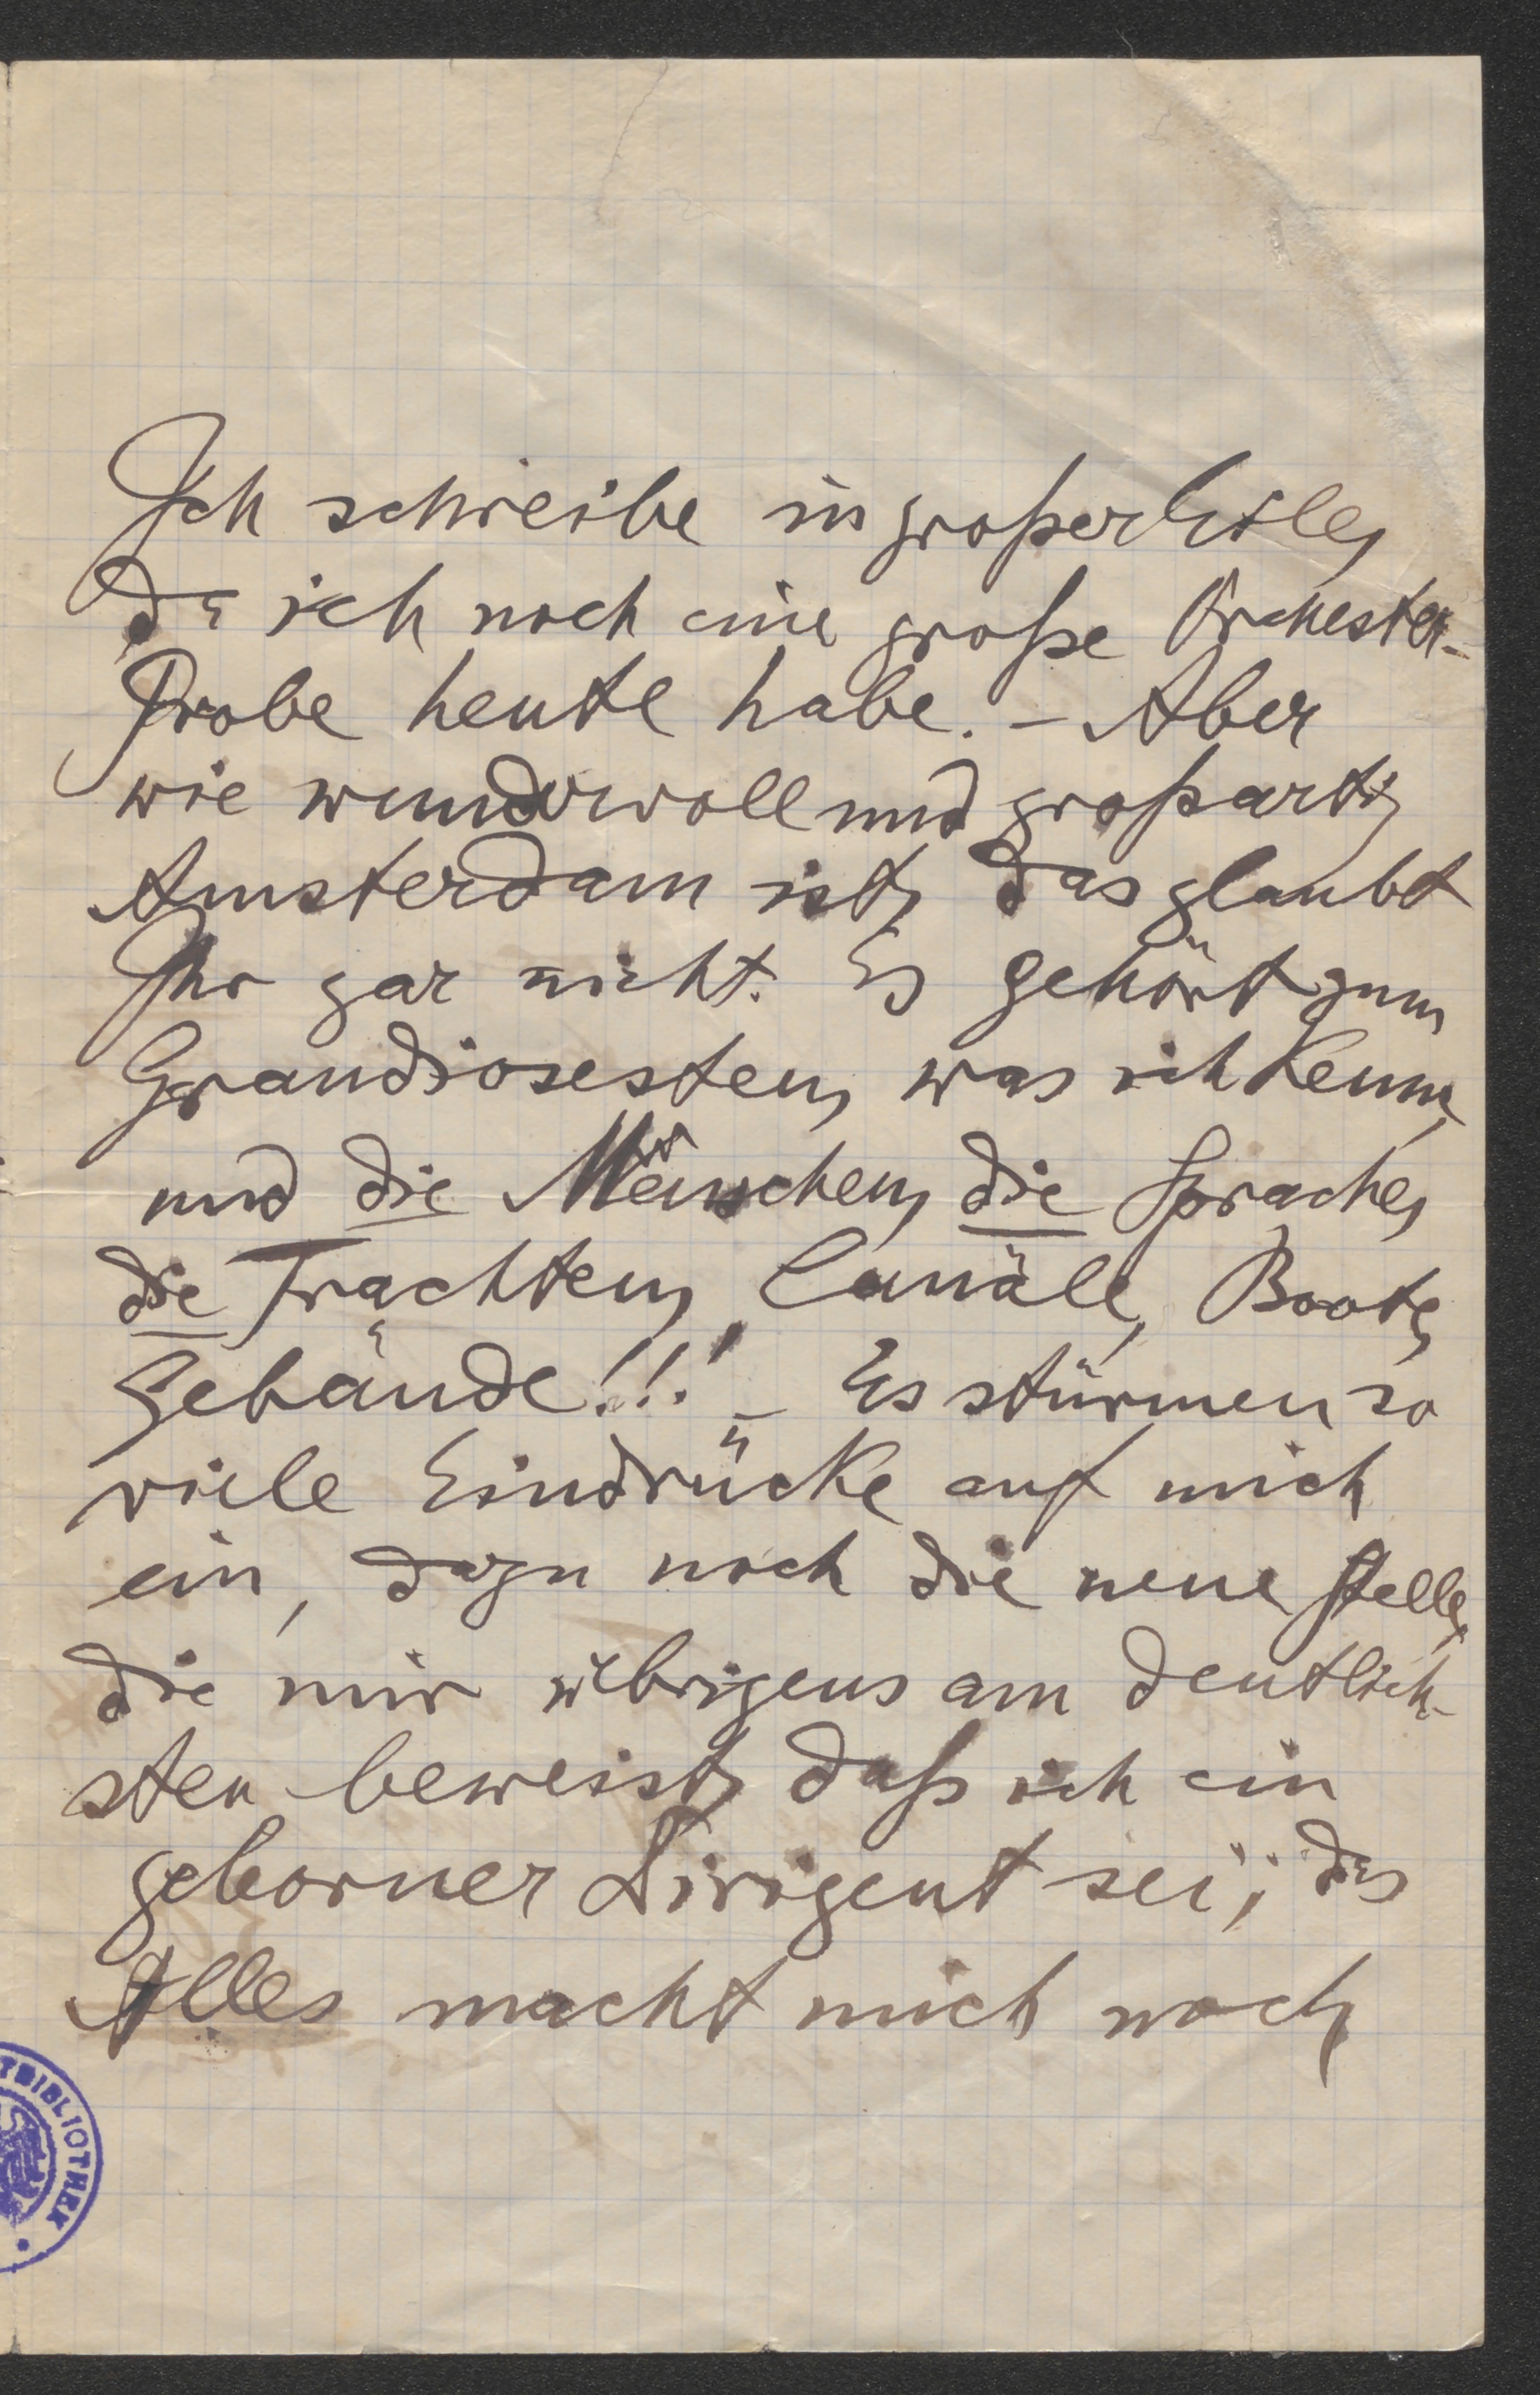 Ich schreibe in großer Eile,
da ich noch eine große Orchester-
Probe heute habe. – Aber
wie wundervoll und großartig
Amsterdam ist, das glaubt
Ihr gar nicht. Es gehört zum
Grandiosesten, was ich kenne,
und die Menschen, die Sprache,
die Trachten, Canäle, Boote,
Gebäude!!! – Es stürmen so
viele Eindrücke auf mich
ein, dazu noch die neue Stelle,
die mir übrigens am deutlich-
sten beweist, daß ich ein
geborner Dirigent sei; das
Alles macht mich noch
TBIBLIOTHEK